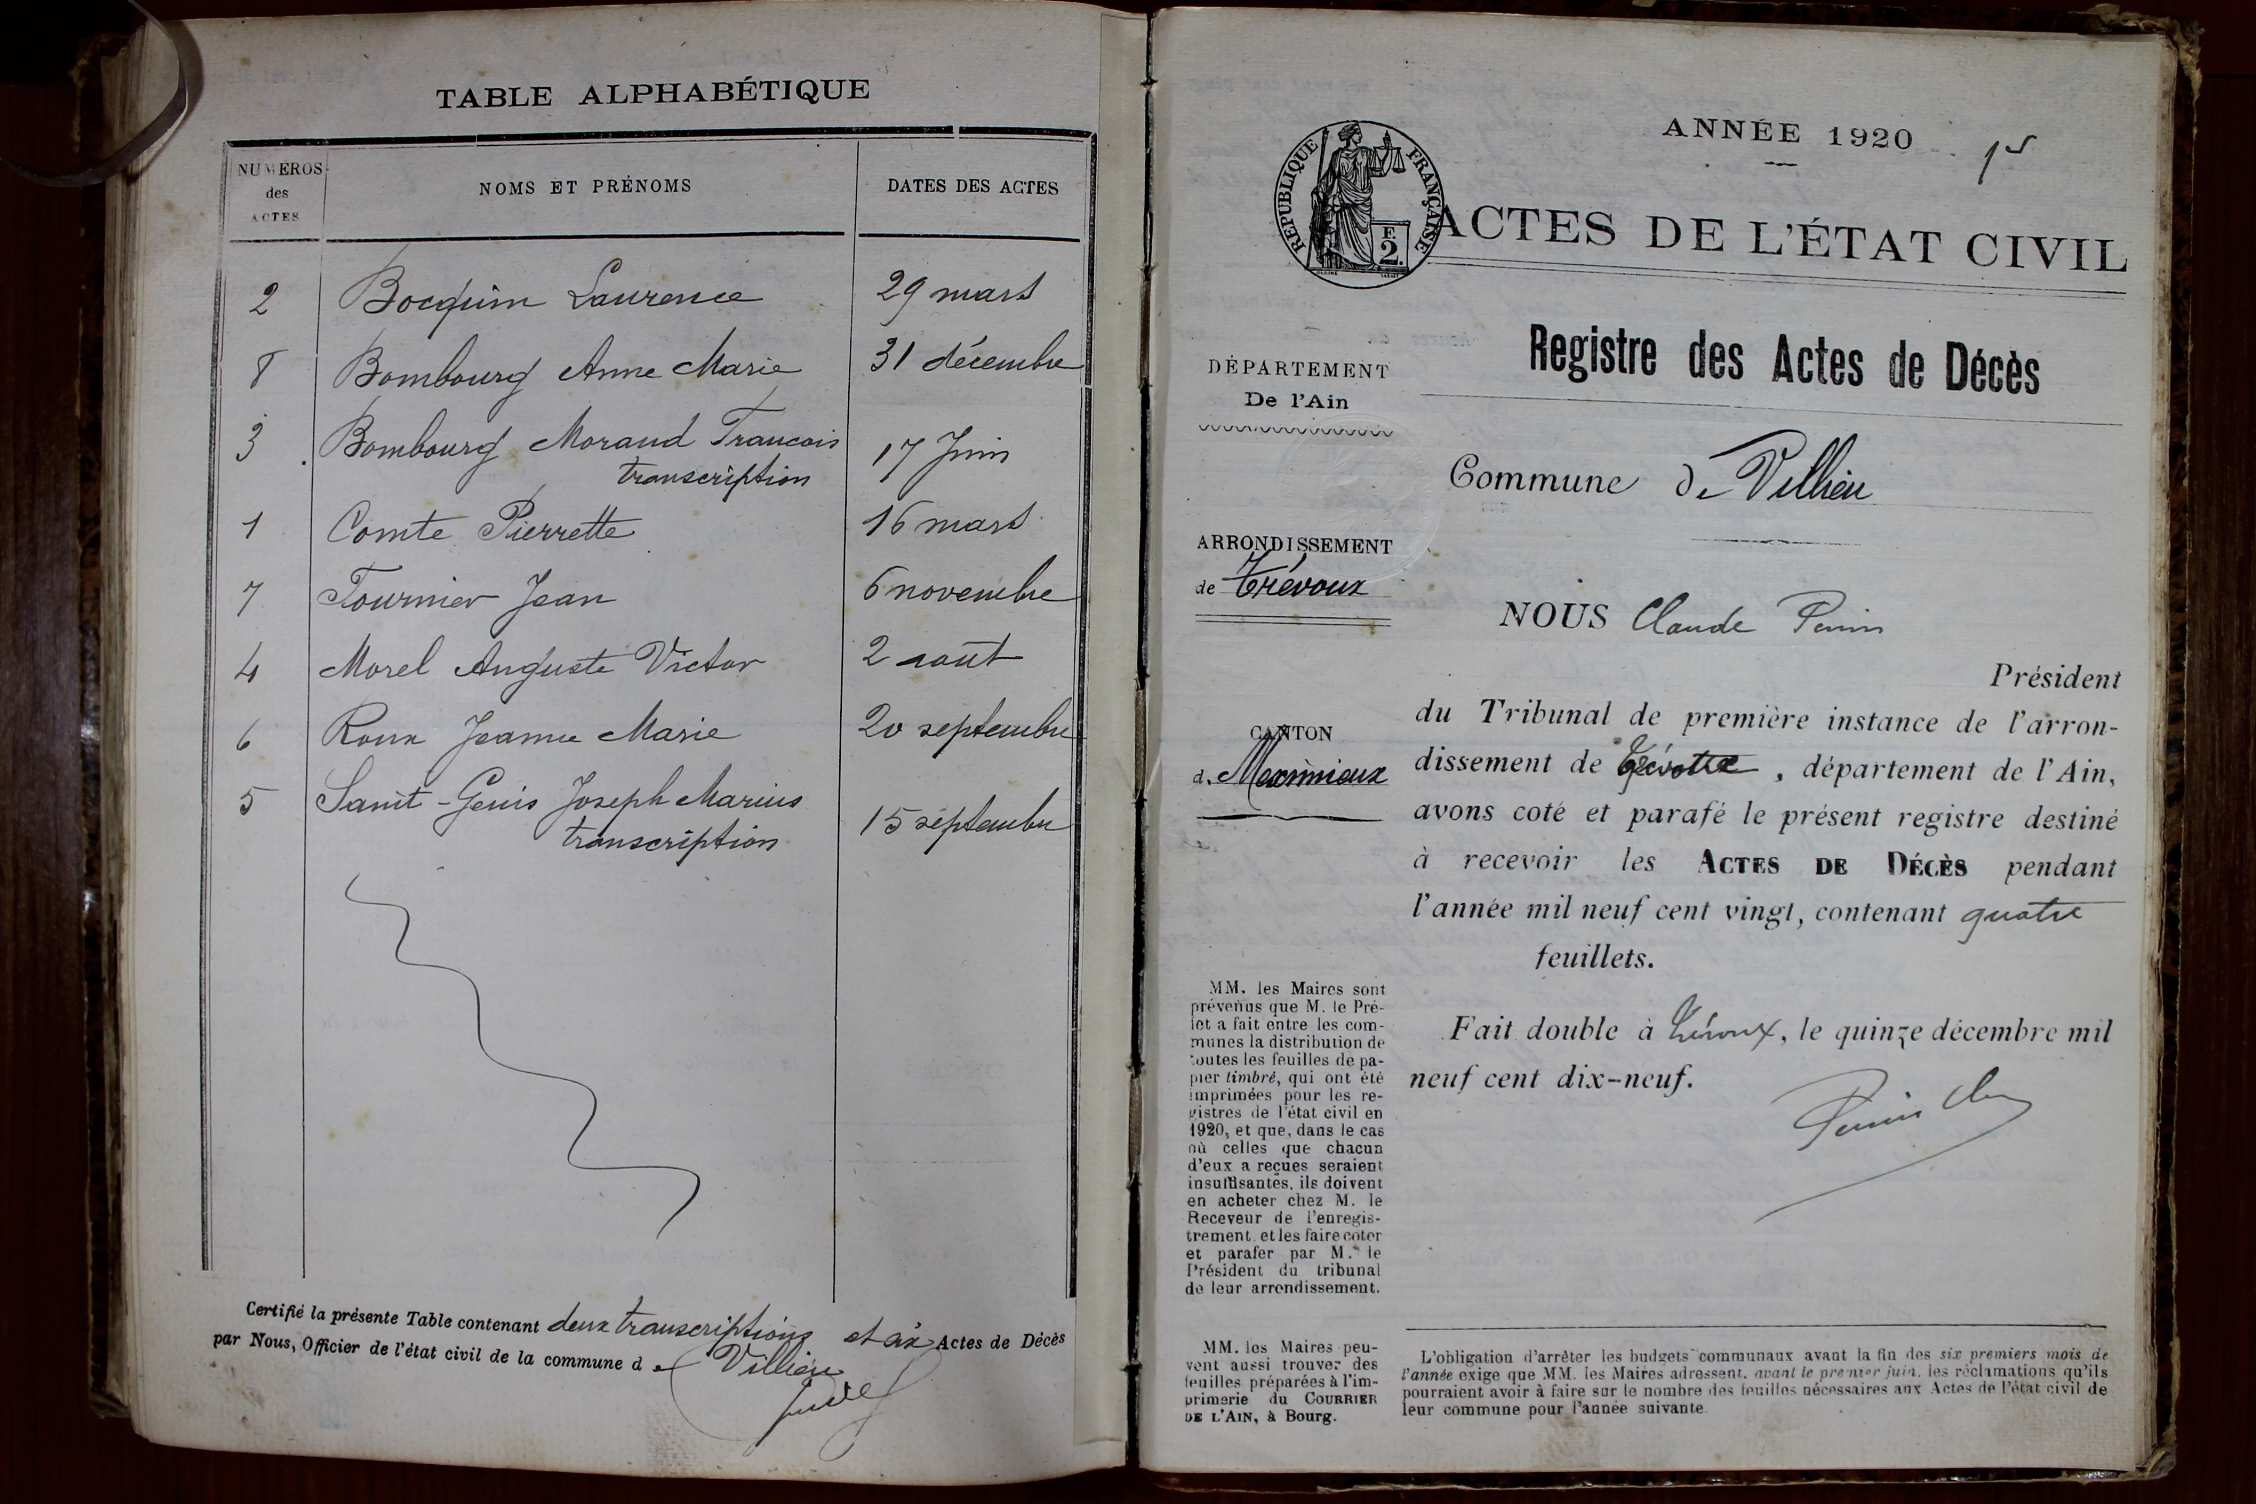 TABLE ALPHABÉTIQUE
NUMEROS des ACTES
NOMS ET PRÉNOMS
DATES DES ACTES
2 Bocquin Laurence 29 mars
8 Bombourg Anne Marie 31 décembre
3 Bombourg Morand Francois 17 Juin
transcription
1 Comte Pierrette 16 mars
7 Fournier Jean 6 novembre
4 Morel Auguste Victor 2 août
6 Roux Jeanne Marie 20 septembre
5 Saint-Genis Joseph Marius 15 septembre
transcription
Certifié la présente Table contenant deux transcriptions et six Actes de Décès
par Nous, Officier de l'état civil de la commune de Villieu
ANNÉE 1920
RÉPUBLIQUE FRANÇAISE
F. 2.
ACTES DE L'ÉTAT CIVIL
Registre des Actes de Décès
DÉPARTEMENT
De l'Ain
Commune de Villieu
ARRONDISSEMENT
de Trévoux
NOUS Claude Perrin
Président
du Tribunal de première instance de l'arron-
dissement de Trévoux, département de l'Ain,
avons coté et parafé le présent registre destiné
à recevoir les ACTES DE DÉCÈS pendant
l'année mil neuf cent vingt, contenant quatre
feuillets.
Fait double à Trévoux, le quinze décembre mil
neuf cent dix-neuf.
CANTON
d. Meximieux
MM. les Maires sont
prévenus que M. le Pré-
fet a fait entre les com-
munes la distribution de
toutes les feuilles de pa-
pier timbré, qui ont été
imprimées pour les re-
gistres de l'état civil en
1920, et que, dans le cas
où celles que chacun
d'eux a reçues seraient
insuffisantes, ils doivent
en acheter chez M. le
Receveur de l'enregis-
trement et les faire coter
et parafer par M. le
Président du tribunal
de leur arrondissement.
MM. les Maires peu-
vent aussi trouver des
feuilles préparées à l'im-
primerie du COURRIER
DE L'AIN, à Bourg.
L'obligation d'arrêter les budgets communaux avant la fin des six premiers mois de
l'année exige que MM. les Maires adressent, avant le premier juin, les réclamations qu'ils
pourraient avoir à faire sur le nombre des feuilles nécessaires aux Actes de l'état civil de
leur commune pour l'année suivante.